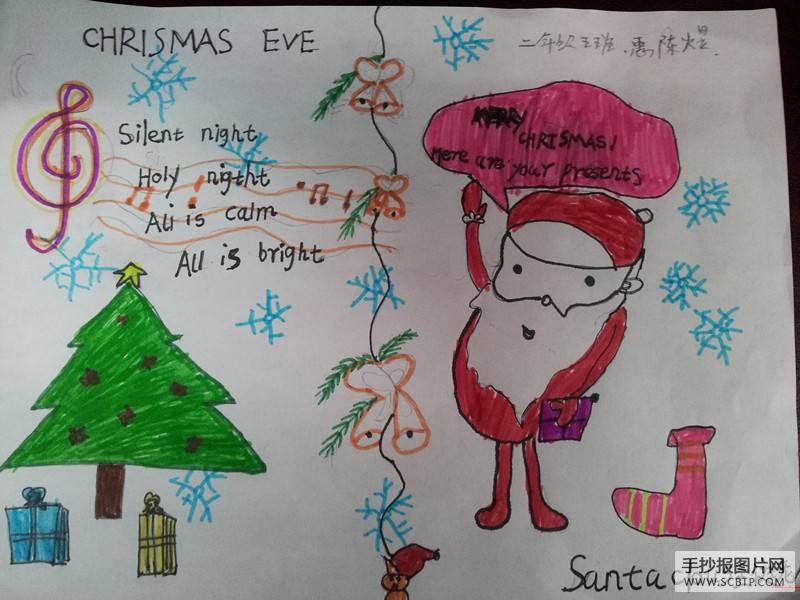 CHRISMAS EVE
二年级五班
Silent night
Holy nightht
All is calm
All is bright
MERRY
CHRISMAS!
Here are your presents
Santa
手抄报图片网
WWW.SCBTP.COM